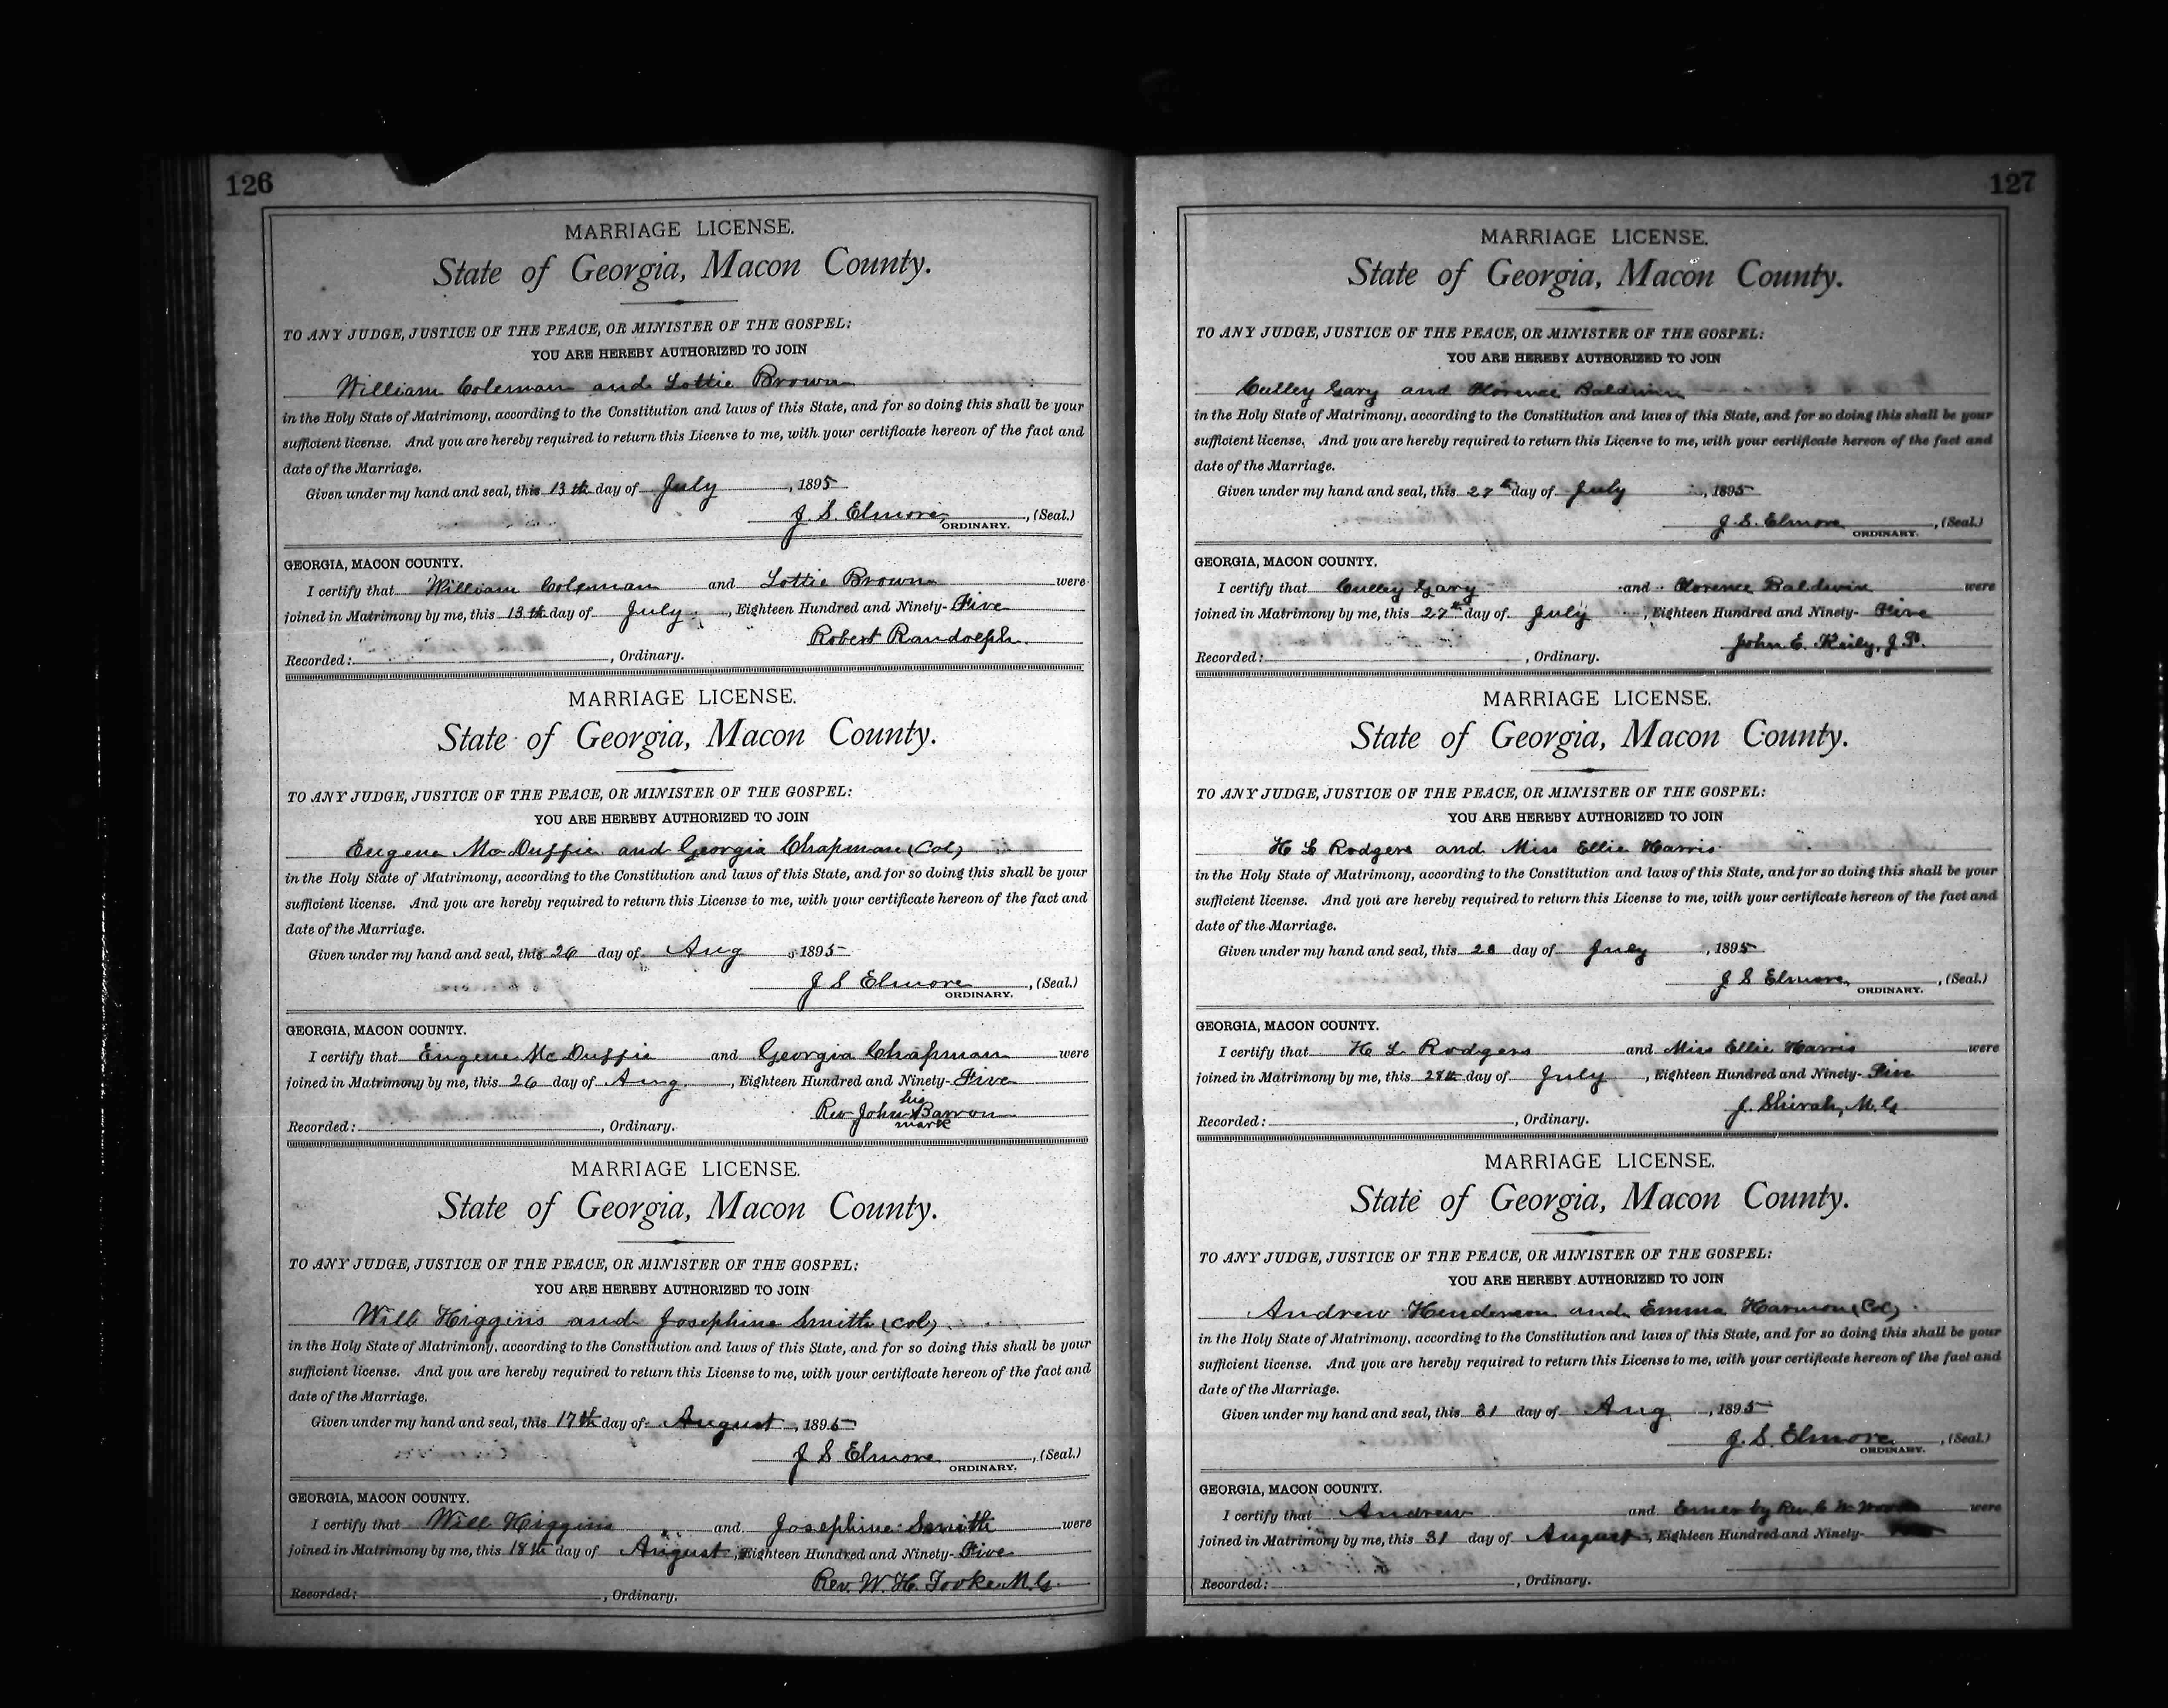 126
MARRIAGE LICENSE.
State of Georgia, Macon County.
TO ANY JUDGE, JUSTICE OF THE PEACE, OR MINISTER OF THE GOSPEL:
YOU ARE HEREBY AUTHORIZED TO JOIN
William Coleman and Lottie Brown
in the Holy State of Matrimony, according to the Constitution and laws of this State, and for so doing this shall be your
sufficient license. And you are hereby required to return this License to me, with your certificate hereon of the fact and
date of the Marriage.
Given under my hand and seal, this 13th day of July, 1895
J. S. Elmore, (Seal.)
ORDINARY.
GEORGIA, MACON COUNTY.
I certify that William Coleman and Lottie Brown were
joined in Matrimony by me, this 13th day of July, Eighteen Hundred and Ninety-Five
Robert Randolph.
Recorded: , Ordinary.
MARRIAGE LICENSE.
State of Georgia, Macon County.
TO ANY JUDGE, JUSTICE OF THE PEACE, OR MINISTER OF THE GOSPEL:
YOU ARE HEREBY AUTHORIZED TO JOIN
Eugene McDuffie and Georgia Chapman (Col)
in the Holy State of Matrimony, according to the Constitution and laws of this State, and for so doing this shall be your
sufficient license. And you are hereby required to return this License to me, with your certificate hereon of the fact and
date of the Marriage.
Given under my hand and seal, this 26 day of Aug 1895
J S Elmore, (Seal.)
ORDINARY.
GEORGIA, MACON COUNTY.
I certify that Eugene McDuffie and Georgia Chapman were
joined in Matrimony by me, this 26 day of Aug., Eighteen Hundred and Ninety-Five
his
Rev John X Barron
mark
Recorded: , Ordinary.
MARRIAGE LICENSE.
State of Georgia, Macon County.
TO ANY JUDGE, JUSTICE OF THE PEACE, OR MINISTER OF THE GOSPEL:
YOU ARE HEREBY AUTHORIZED TO JOIN
Will Higgins and Josephine Smith (col)
in the Holy State of Matrimony, according to the Constitution and laws of this State, and for so doing this shall be your
sufficient license. And you are hereby required to return this License to me, with your certificate hereon of the fact and
date of the Marriage.
Given under my hand and seal, this 17th day of August, 1895
J S Elmore, (Seal.)
ORDINARY.
GEORGIA, MACON COUNTY.
I certify that Will Higgins and Josephine Smith were
joined in Matrimony by me, this 18th day of August, Eighteen Hundred and Ninety-Five
Rev. W. H. Tooke M.G.
Recorded: , Ordinary.
127
MARRIAGE LICENSE.
State of Georgia, Macon County.
TO ANY JUDGE, JUSTICE OF THE PEACE, OR MINISTER OF THE GOSPEL:
YOU ARE HEREBY AUTHORIZED TO JOIN
Culley Gary and Florence Baldwin
in the Holy State of Matrimony, according to the Constitution and laws of this State, and for so doing this shall be your
sufficient license. And you are hereby required to return this License to me, with your certificate hereon of the fact and
date of the Marriage.
Given under my hand and seal, this 27th day of July, 1895
J. S. Elmore, (Seal.)
ORDINARY.
GEORGIA, MACON COUNTY.
I certify that Culley Gary and Florence Baldwin were
joined in Matrimony by me, this 27th day of July, Eighteen Hundred and Ninety-Five
John E. Keily, J.P.
Recorded: , Ordinary.
MARRIAGE LICENSE.
State of Georgia, Macon County.
TO ANY JUDGE, JUSTICE OF THE PEACE, OR MINISTER OF THE GOSPEL:
YOU ARE HEREBY AUTHORIZED TO JOIN
H L Rodgers and Miss Ellie Harris
in the Holy State of Matrimony, according to the Constitution and laws of this State, and for so doing this shall be your
sufficient license. And you are hereby required to return this License to me, with your certificate hereon of the fact and
date of the Marriage.
Given under my hand and seal, this 28 day of July, 1895
J S Elmore, (Seal.)
ORDINARY.
GEORGIA, MACON COUNTY.
I certify that H L Rodgers and Miss Ellie Harris were
joined in Matrimony by me, this 28th day of July, Eighteen Hundred and Ninety-Five
J. Shirah, M.G
Recorded: , Ordinary.
MARRIAGE LICENSE.
State of Georgia, Macon County.
TO ANY JUDGE, JUSTICE OF THE PEACE, OR MINISTER OF THE GOSPEL:
YOU ARE HEREBY AUTHORIZED TO JOIN
Andrew Henderson and Emma Harmon (Col)
in the Holy State of Matrimony, according to the Constitution and laws of this State, and for so doing this shall be your
sufficient license. And you are hereby required to return this License to me, with your certificate hereon of the fact and
date of the Marriage.
Given under my hand and seal, this 31 day of Aug, 1895
J. S. Elmore, (Seal.)
ORDINARY.
GEORGIA, MACON COUNTY.
I certify that Andrew and by Rev. were
joined in Matrimony by me, this 31 day of August, Eighteen Hundred and Ninety-
Recorded: , Ordinary.